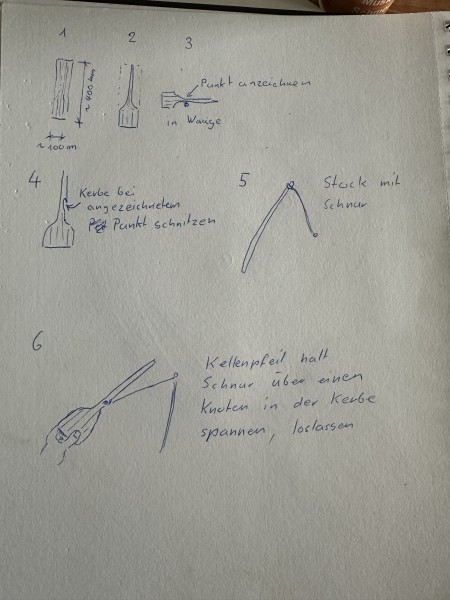 1
2
3
~ 400 mm
~ 100 m
Punkt anzeichnen
in Waage
4
Kerbe bei
angezeichnetem
Punkt schnitzen
5
Stock mit
Schnur
6
Kellenpfeil halt
Schnur über einen
Knoten in der Kerbe
spannen, loslassen